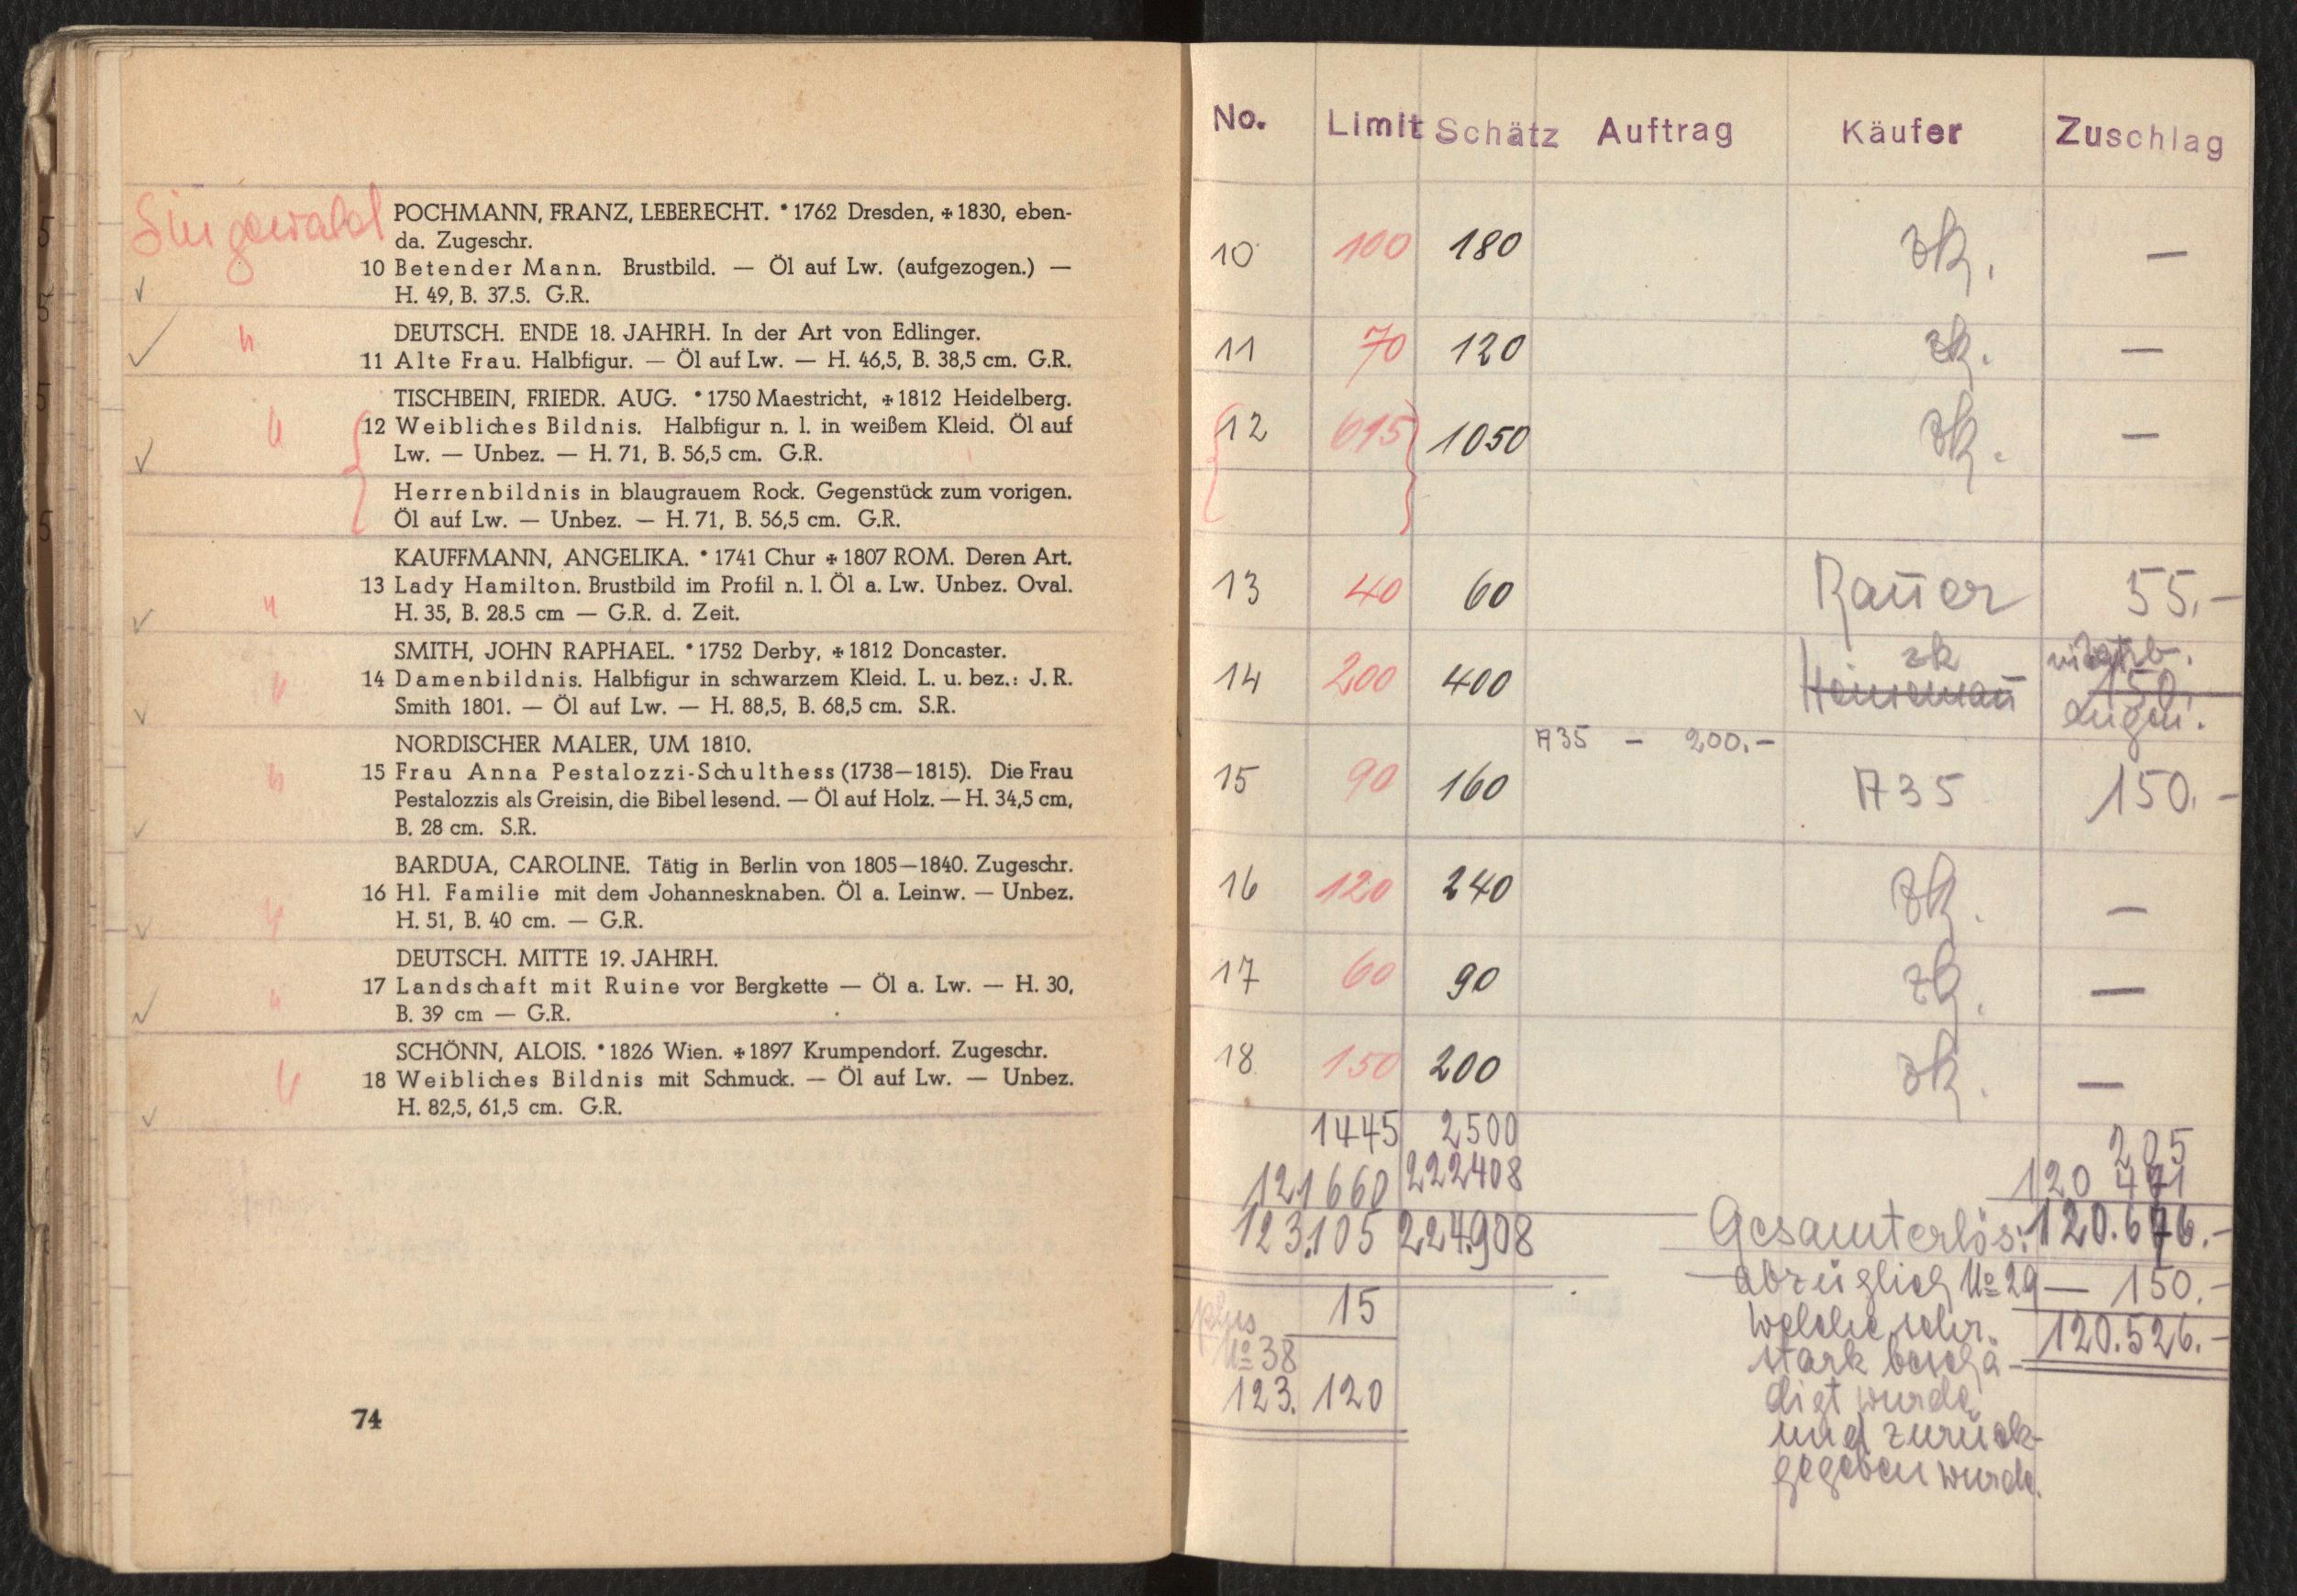 Singewald
POCHMANN, FRANZ, LEBERECHT. *1762 Dresden, ✠1830, eben-
da. Zugeschr.
10 Betender Mann. Brustbild. — Öl auf Lw. (aufgezogen.) —
H. 49, B. 37.5. G.R.
DEUTSCH. ENDE 18. JAHRH. In der Art von Edlinger.
11 Alte Frau. Halbfigur. — Öl auf Lw. — H. 46,5, B. 38,5 cm. G.R.
TISCHBEIN, FRIEDR. AUG. *1750 Maestricht, ✠1812 Heidelberg.
12 Weibliches Bildnis. Halbfigur n. l. in weißem Kleid. Öl auf
Lw. — Unbez. — H. 71, B. 56,5 cm. G.R.
Herrenbildnis in blaugrauem Rock. Gegenstück zum vorigen.
Öl auf Lw. — Unbez. — H. 71, B. 56,5 cm. G.R.
KAUFFMANN, ANGELIKA. *1741 Chur ✠1807 ROM. Deren Art.
13 Lady Hamilton. Brustbild im Profil n. l. Öl a. Lw. Unbez. Oval.
H. 35, B. 28.5 cm — G.R. d. Zeit.
SMITH, JOHN RAPHAEL. *1752 Derby, ✠1812 Doncaster.
14 Damenbildnis. Halbfigur in schwarzem Kleid. L. u. bez.: J. R.
Smith 1801. — Öl auf Lw. — H. 88,5, B. 68,5 cm. S.R.
NORDISCHER MALER, UM 1810.
15 Frau Anna Pestalozzi-Schulthess (1738—1815). Die Frau
Pestalozzis als Greisin, die Bibel lesend. — Öl auf Holz. — H. 34,5 cm,
B. 28 cm. S.R.
BARDUA, CAROLINE. Tätig in Berlin von 1805—1840. Zugeschr.
16 Hl. Familie mit dem Johannesknaben. Öl a. Leinw. — Unbez.
H. 51, B. 40 cm. — G.R.
DEUTSCH. MITTE 19. JAHRH.
17 Landschaft mit Ruine vor Bergkette — Öl a. Lw. — H. 30,
B. 39 cm — G.R.
SCHÖNN, ALOIS. *1826 Wien. ✠1897 Krumpendorf. Zugeschr.
18 Weibliches Bildnis mit Schmuck. — Öl auf Lw. — Unbez.
H. 82,5, 61,5 cm. G.R.
74
No. Limit Schätz Auftrag Käufer Zuschlag
10 100 180 zk. —
11 70 120 zk. —
12 615 1050 zk. —
13 40 60 Rauer 55.-
zk
14 200 400 Heinemañ 150.
A35 - 200.-
15 90 160 A35 150.-
16 120 240 zk. —
17 60 90 zk. —
18 150 200 zk. —
1445 2500 205
121660 222408 120 471
123.105 224.908 Gesamterlös: 120.676.-
15 abzüglich No 29 — 150.-
plus welche sehr 120.526.-
No 38 stark beschä-
123.120 digt wurde
und zurück-
gegeben wurde.